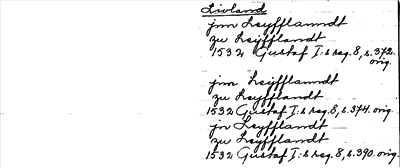 Livland
jnn Leyfflanndt
zu Leijfflandt
1532 Gustaf I:s reg. 8, s. 372.
orig.
jnn Leijfflandt
zu Leyfflandt
1532 Gustaf I:s reg. 8, s. 374. orig.
jn Leyfflandt
zu Leyfflandt
1532 Gustaf I:s reg. 8, s. 390. orig.